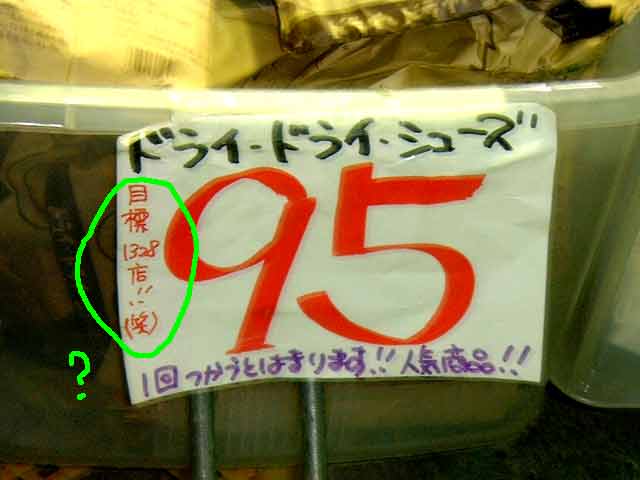 ドライ・ドライ・シューズ
目標
1328
店!!
(笑)
95
1回つかうとはまります!! 人気商品!!
?